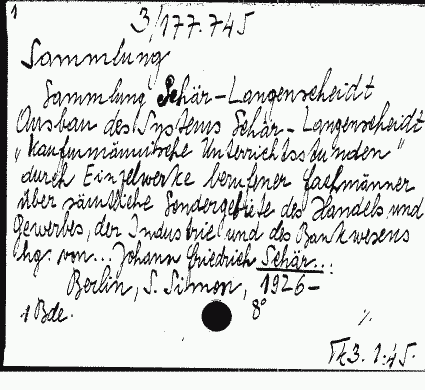 1
3/177.745
Sammlung
Sammlung Schär-Langenscheidt
Ausbau des Systems Schär-Langenscheidt
"Kaufmännische Unterrichtsstunden"
durch Einzelwerke berufener Fachmänner
über sämtliche Sondergebiete des Handels und
Gewerbes, der Industrie und des Bankwesens
hg. von... Johann Friedrich Schär...:
Berlin, S. Simon, 1926-
1 Bde. 8°
1:45.